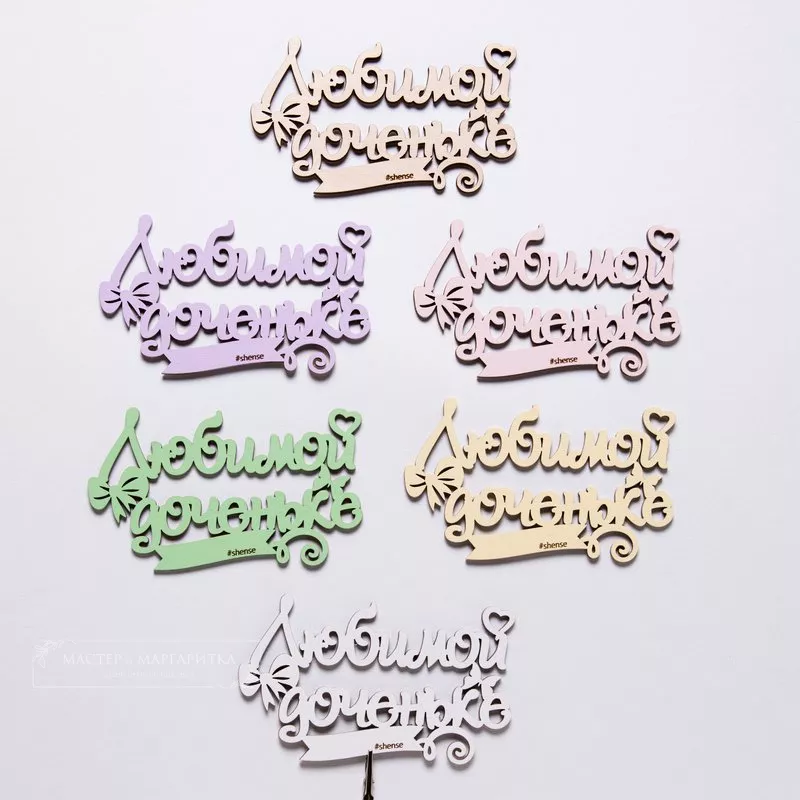 Любимой
доченьке
#shense
Любимой
доченьке
#shense
Любимой
доченьке
#shense
Любимой
доченьке
#shense
Любимой
доченьке
#shense
МАСТЕР & МАРГАРИТКА
Любимой
доченьке
#shense